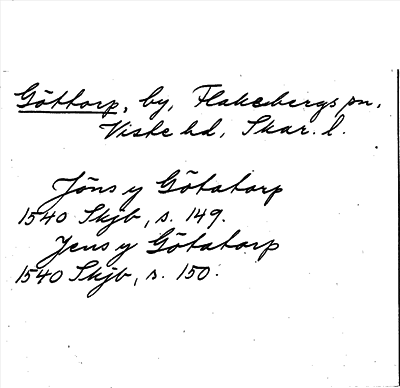 Göttorp, by, Flakebergs sn.
Viste hd, Skar. l.
Jöns y Götatorp
1540 Skjb, s. 149.
Jens y Götatorp
1540 Skjb, s. 150.